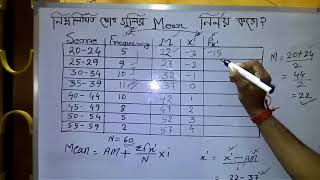 নিম্নলিখিত স্কোর গুলির Mean নির্নয় করো?
Score Frequency M x' fx'
20-24 5 22 -3 -15
25-29 9 27 -2
30-34 10 32 -1
35-39 11 37 0
40-44 10 42 1
45-49 8 47 2
50-54 5 52 3
55-59 2 57 4
N = 60
Mean = AM + Σfx'/N × i
M = 20+24/2
= 44/2
= 22
x' = x - AM
22 - 37